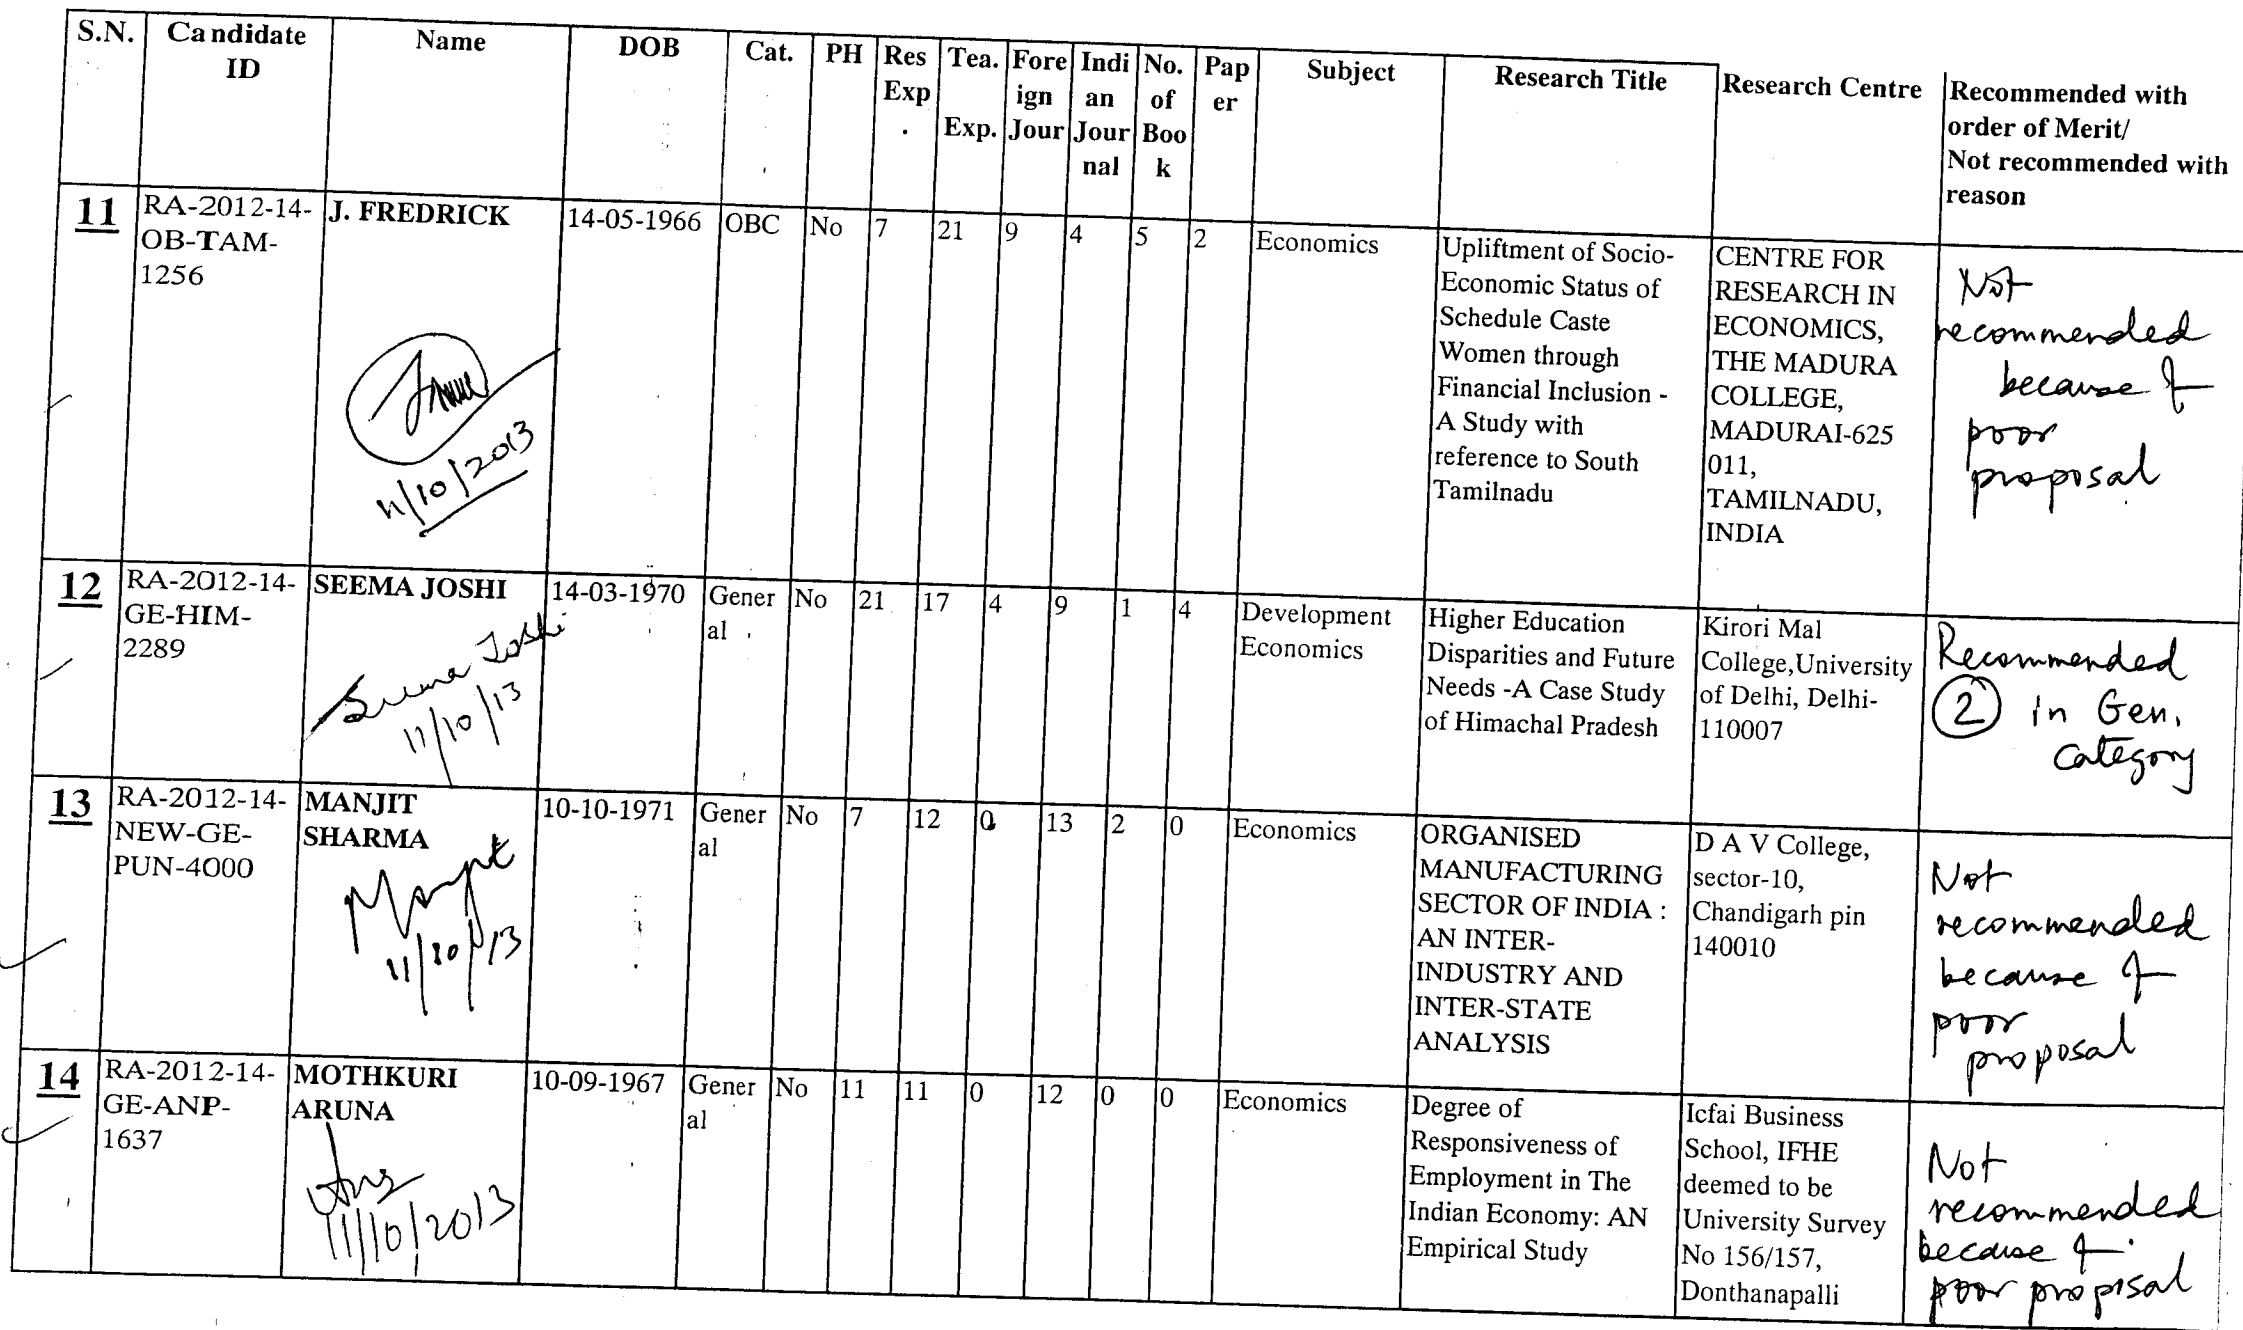 S.N. Candidate ID Name DOB Cat. PH Res Exp . Tea. Exp. Fore ign Jour Indi an Jour nal No. of Boo k Pap er Subject Research Title Research Centre Recommended with order of Merit/ Not recommended with reason
11 RA-2012-14- J. FREDRICK 14-05-1966 OBC No 7 21 9 4 5 2 Economics
OB-TAM-
1256
Upliftment of Socio-
Economic Status of
Schedule Caste
Women through
Financial Inclusion -
A Study with
reference to South
Tamilnadu
CENTRE FOR
RESEARCH IN
ECONOMICS,
THE MADURA
COLLEGE,
MADURAI-625
011,
TAMILNADU,
INDIA
Not
recommended
because of
poor
proposal
11/10/2013
12 RA-2012-14- SEEMA JOSHI 14-03-1970 Gener No 21 17 4 9 1 4 Development
GE-HIM- al Economics
2289
Seema Joshi
11/10/13
Higher Education
Disparities and Future
Needs -A Case Study
of Himachal Pradesh
Kirori Mal
College,University
of Delhi, Delhi-
110007
Recommended
2 in Gen.
category
13 RA-2012-14- MANJIT 10-10-1971 Gener No 7 12 0 13 2 0 Economics
NEW-GE- SHARMA al
PUN-4000
Manjit
11/10/13
ORGANISED
MANUFACTURING
SECTOR OF INDIA :
AN INTER-
INDUSTRY AND
INTER-STATE
ANALYSIS
D A V College,
sector-10,
Chandigarh pin
140010
Not
recommended
because of
poor
proposal
14 RA-2012-14- MOTHKURI 10-09-1967 Gener No 11 11 0 12 0 0 Economics
GE-ANP- ARUNA al
1637
11/10/2013
Degree of
Responsiveness of
Employment in The
Indian Economy: AN
Empirical Study
Icfai Business
School, IFHE
deemed to be
University Survey
No 156/157,
Donthanapalli
Not
recommended
because of
poor proposal